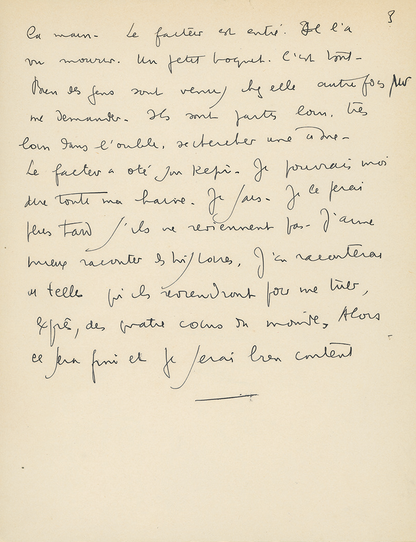 3
la main. Le facteur est entré. Il l'a
vu mourir. Un petit hoquet. C'est tout.
Bien des gens sont venus chez elle autrefois pour
me demander. Ils sont partis loin. très
loin dans l'oubli, rechercher une
Le facteur a oté son Kepi. Je pourrais moi
dire toute ma haine. Je sais. Je le ferai
plus tard s'ils ne reviennent pas. J'aime
mieux raconter des histoires. J'en raconterai
de telles qu'ils reviendront pour me tuer,
exprès, des quatre coins du monde. Alors
ce sera fini et je serai bien content